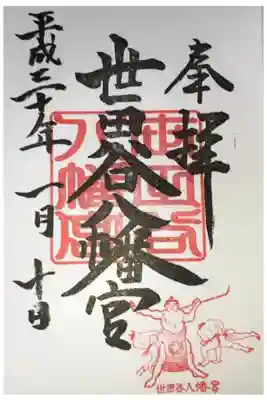 奉拝
世田谷八幡宮
平成三十年 一月 十日
世田谷
八幡宮
世田谷八幡宮